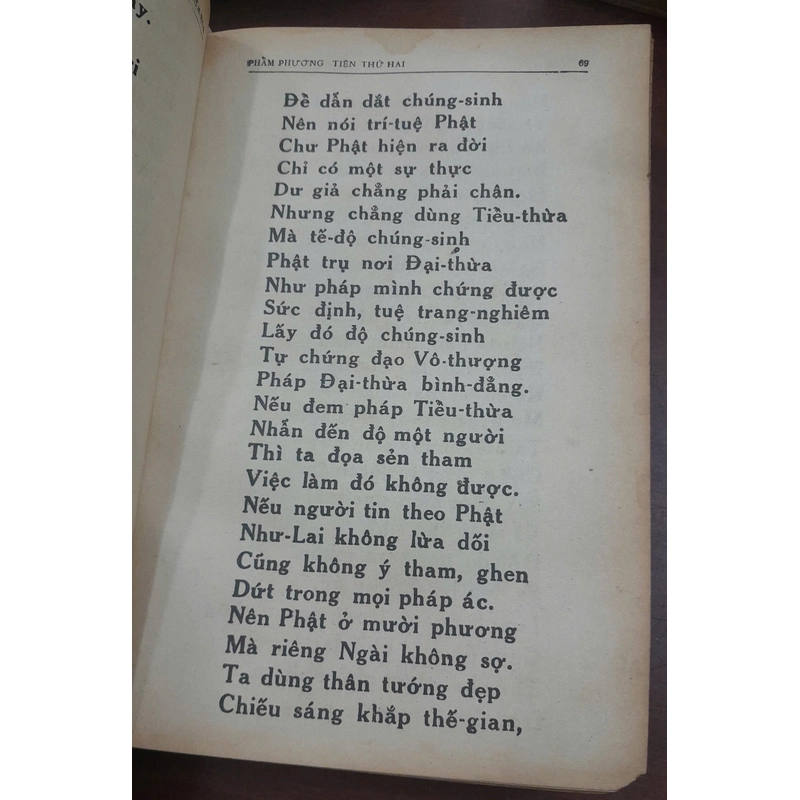 ay.
ri
PHẨM PHƯƠNG TIỆN THỨ HAI 69
Để dẫn dắt chúng-sinh
Nên nói trí-tuệ Phật
Chư Phật hiện ra đời
Chỉ có một sự thực
Dư giả chẳng phải chân.
Nhưng chẳng dùng Tiều-thừa
Mà tế-độ chúng-sinh
Phật trụ nơi Đại-thừa
Như pháp mình chứng được
Sức định, tuệ trang-nghiêm
Lấy đó độ chúng-sinh
Tự chứng đạo Vô-thượng
Pháp Đại-thừa bình-đẳng.
Nếu đem pháp Tiều-thừa
Nhẫn đến độ một người
Thì ta đọa sẻn tham
Việc làm đó không được.
Nếu người tin theo Phật
Như-Lai không lừa dối
Cũng không ý tham, ghen
Dứt trong mọi pháp ác.
Nên Phật ở mười phương
Mà riêng Ngài không sợ.
Ta dùng thân tướng đẹp
Chiếu sáng khắp thế-gian,